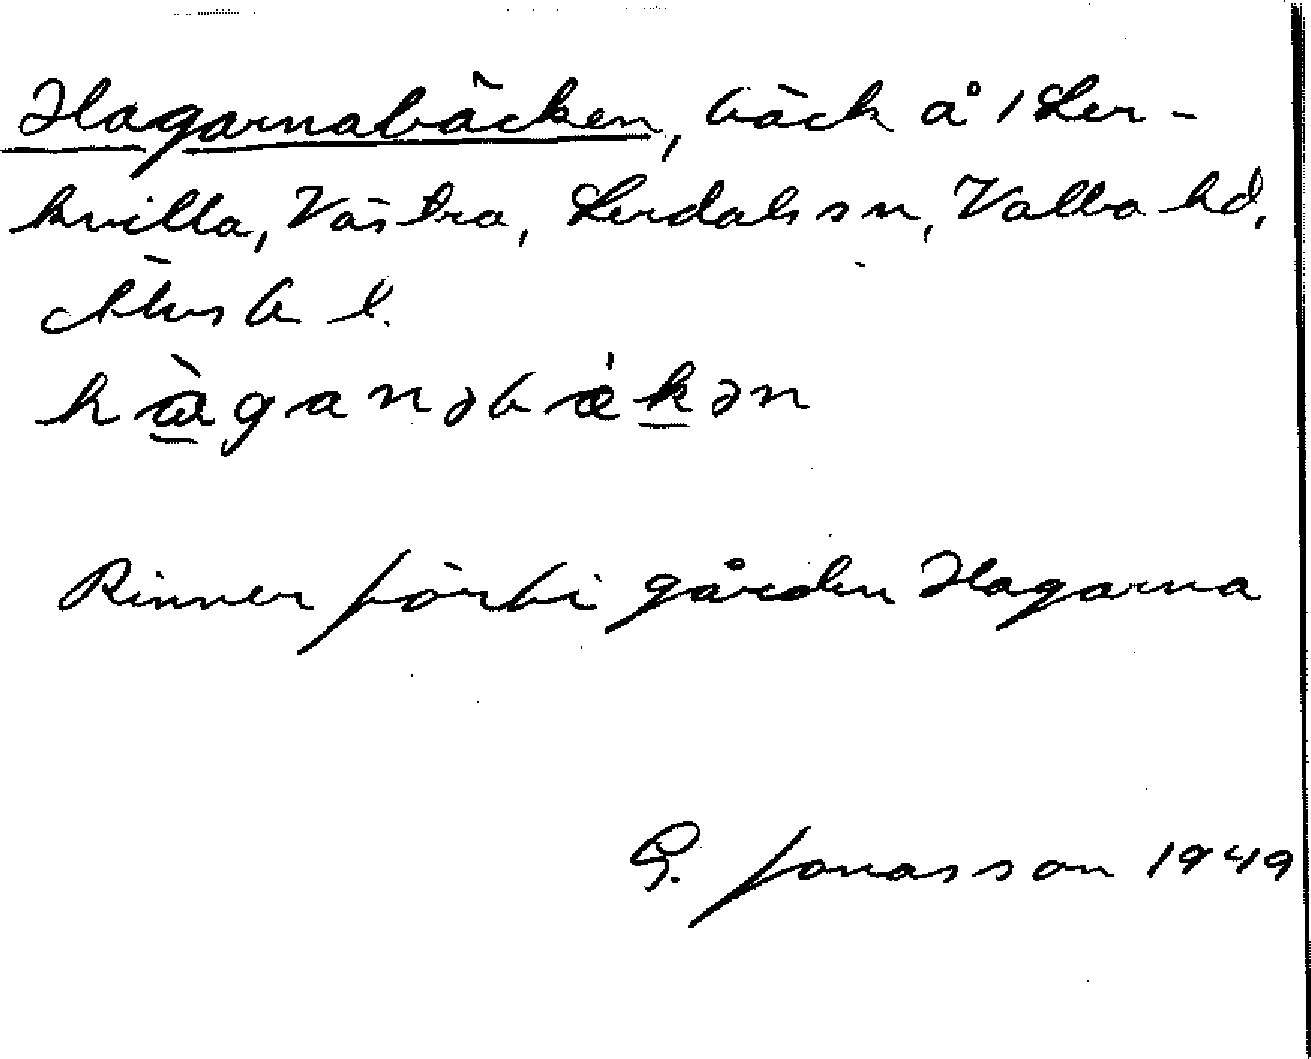 Hagarnabäcken, bäck å 1 Ler-
kvilla, Västra, Lerdals sn, Valbo hd,
Älvsb l.
hàganəbǽkən
Rinner förbi gården Hagarna
G. Jonasson 1949